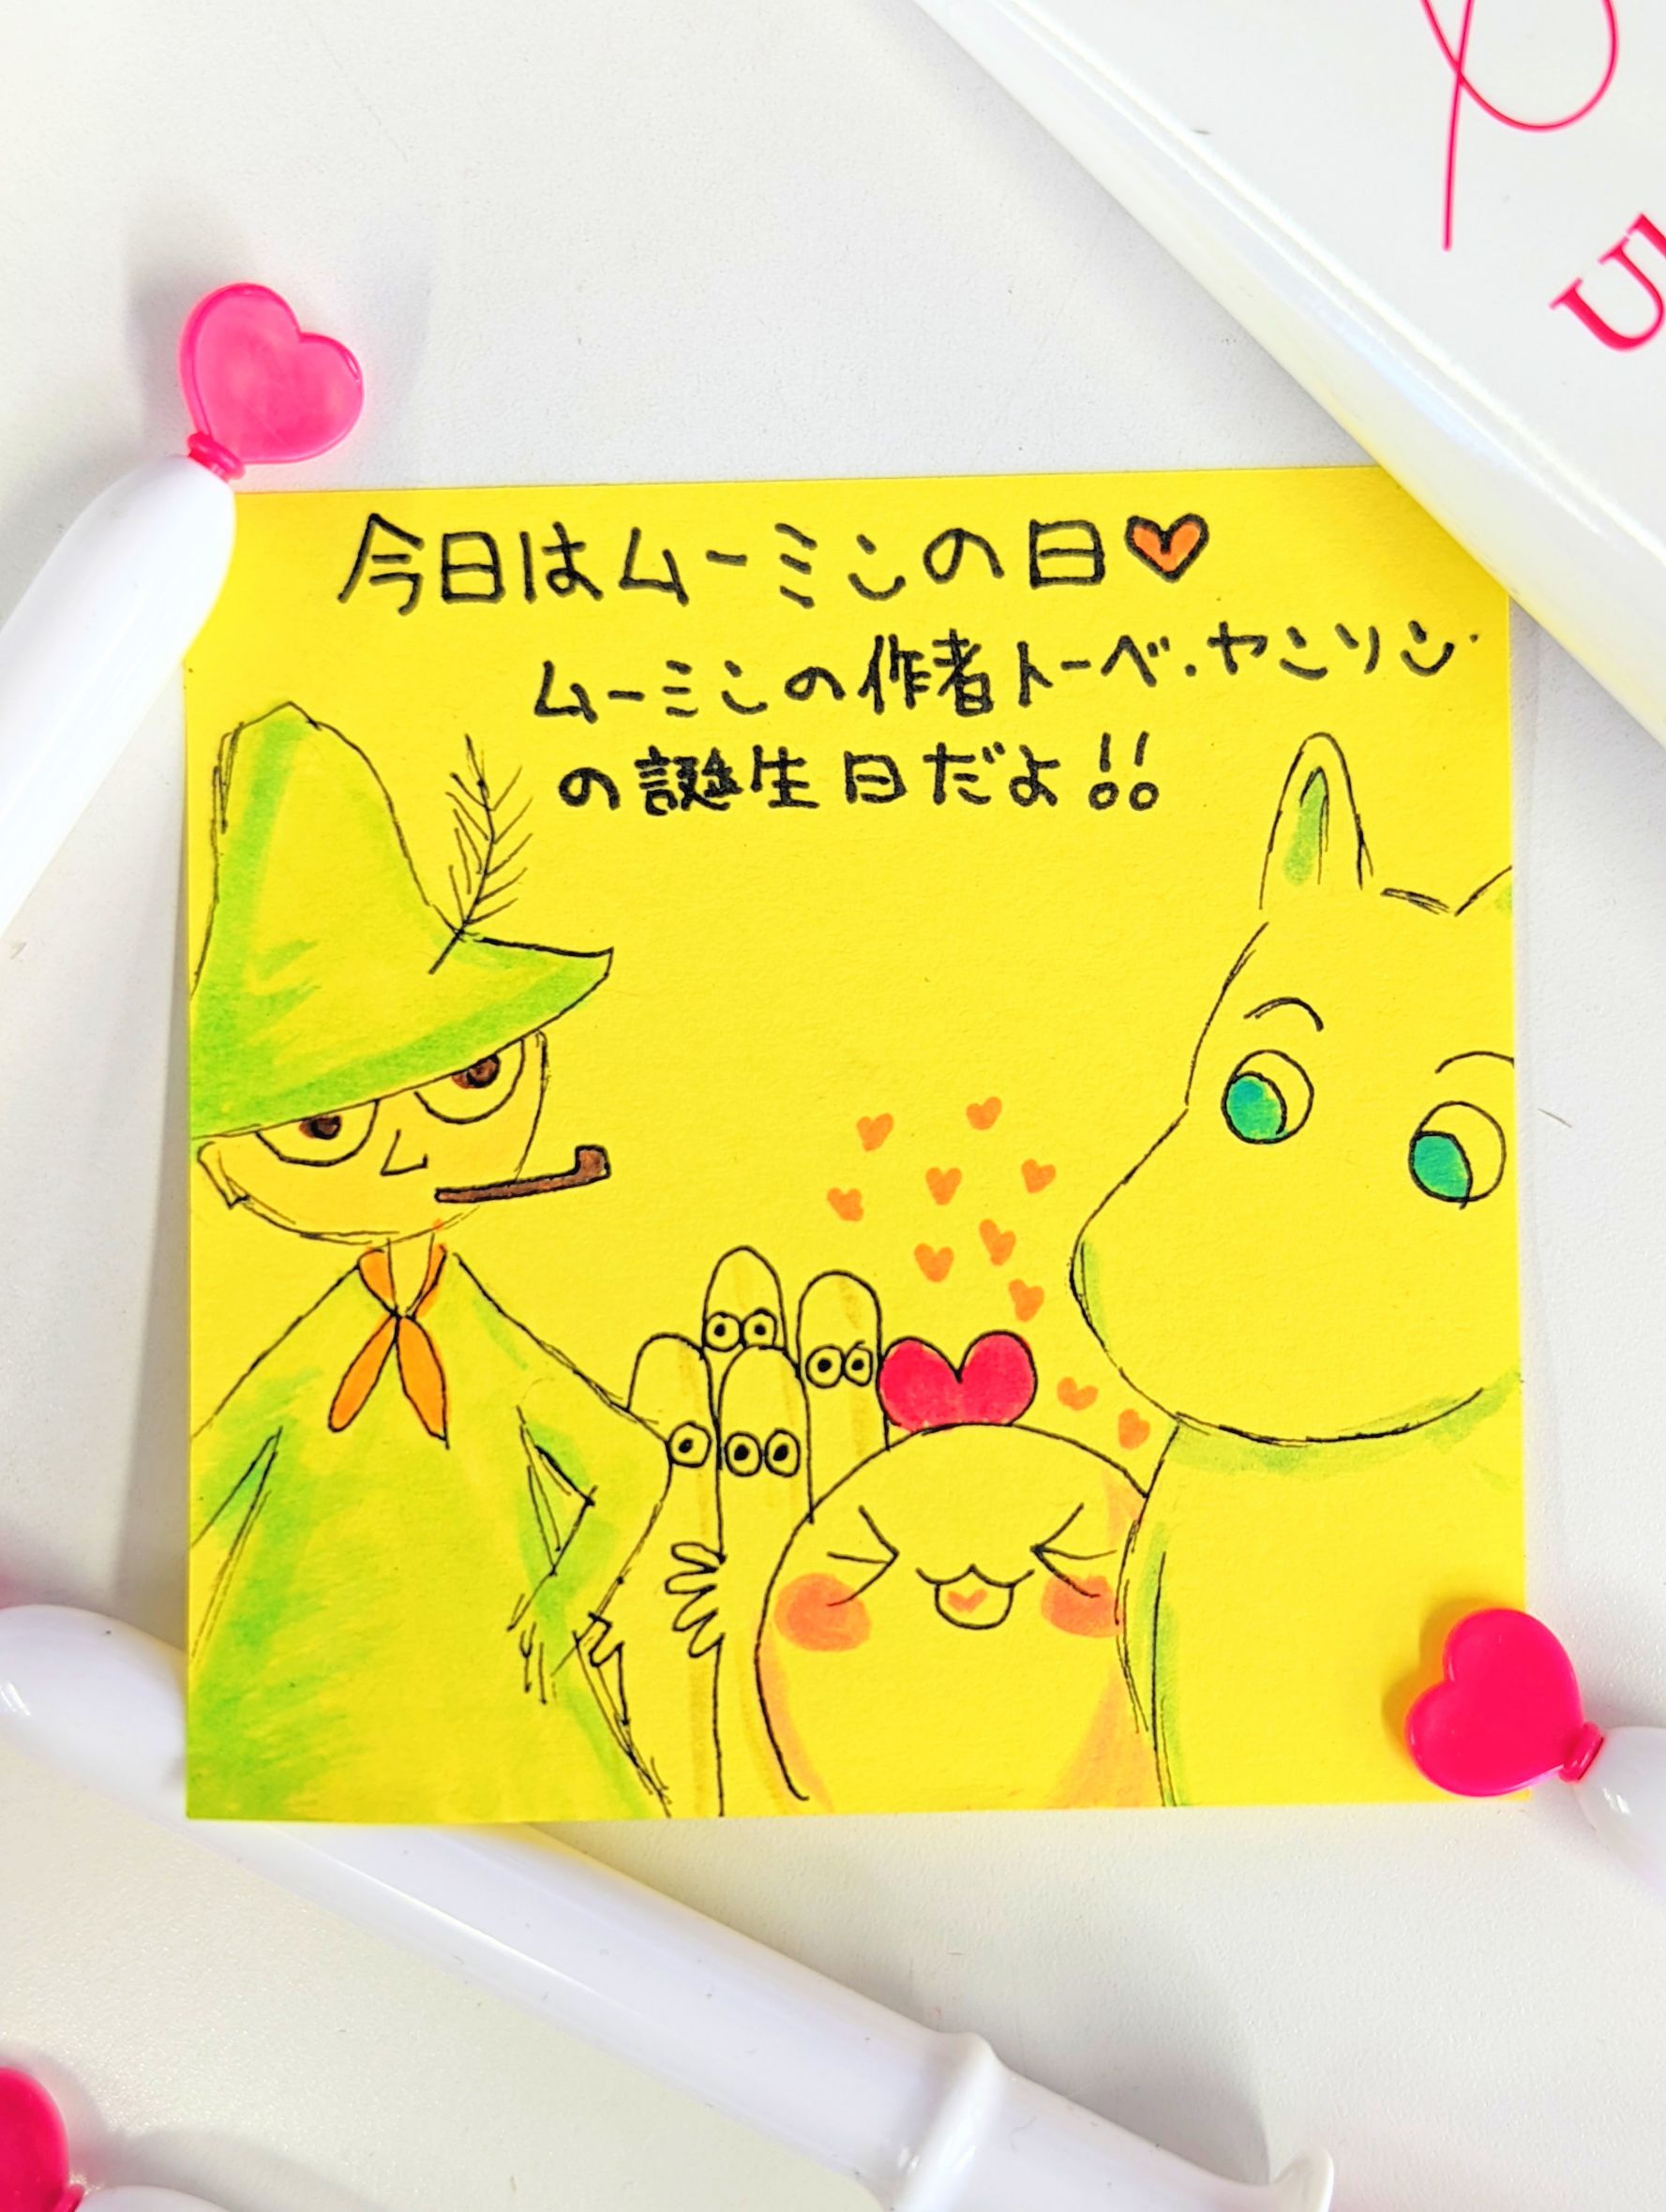 今日はムーミンの日♡
ムーミンの作者トーベ・ヤンソン
の誕生日だよ!!